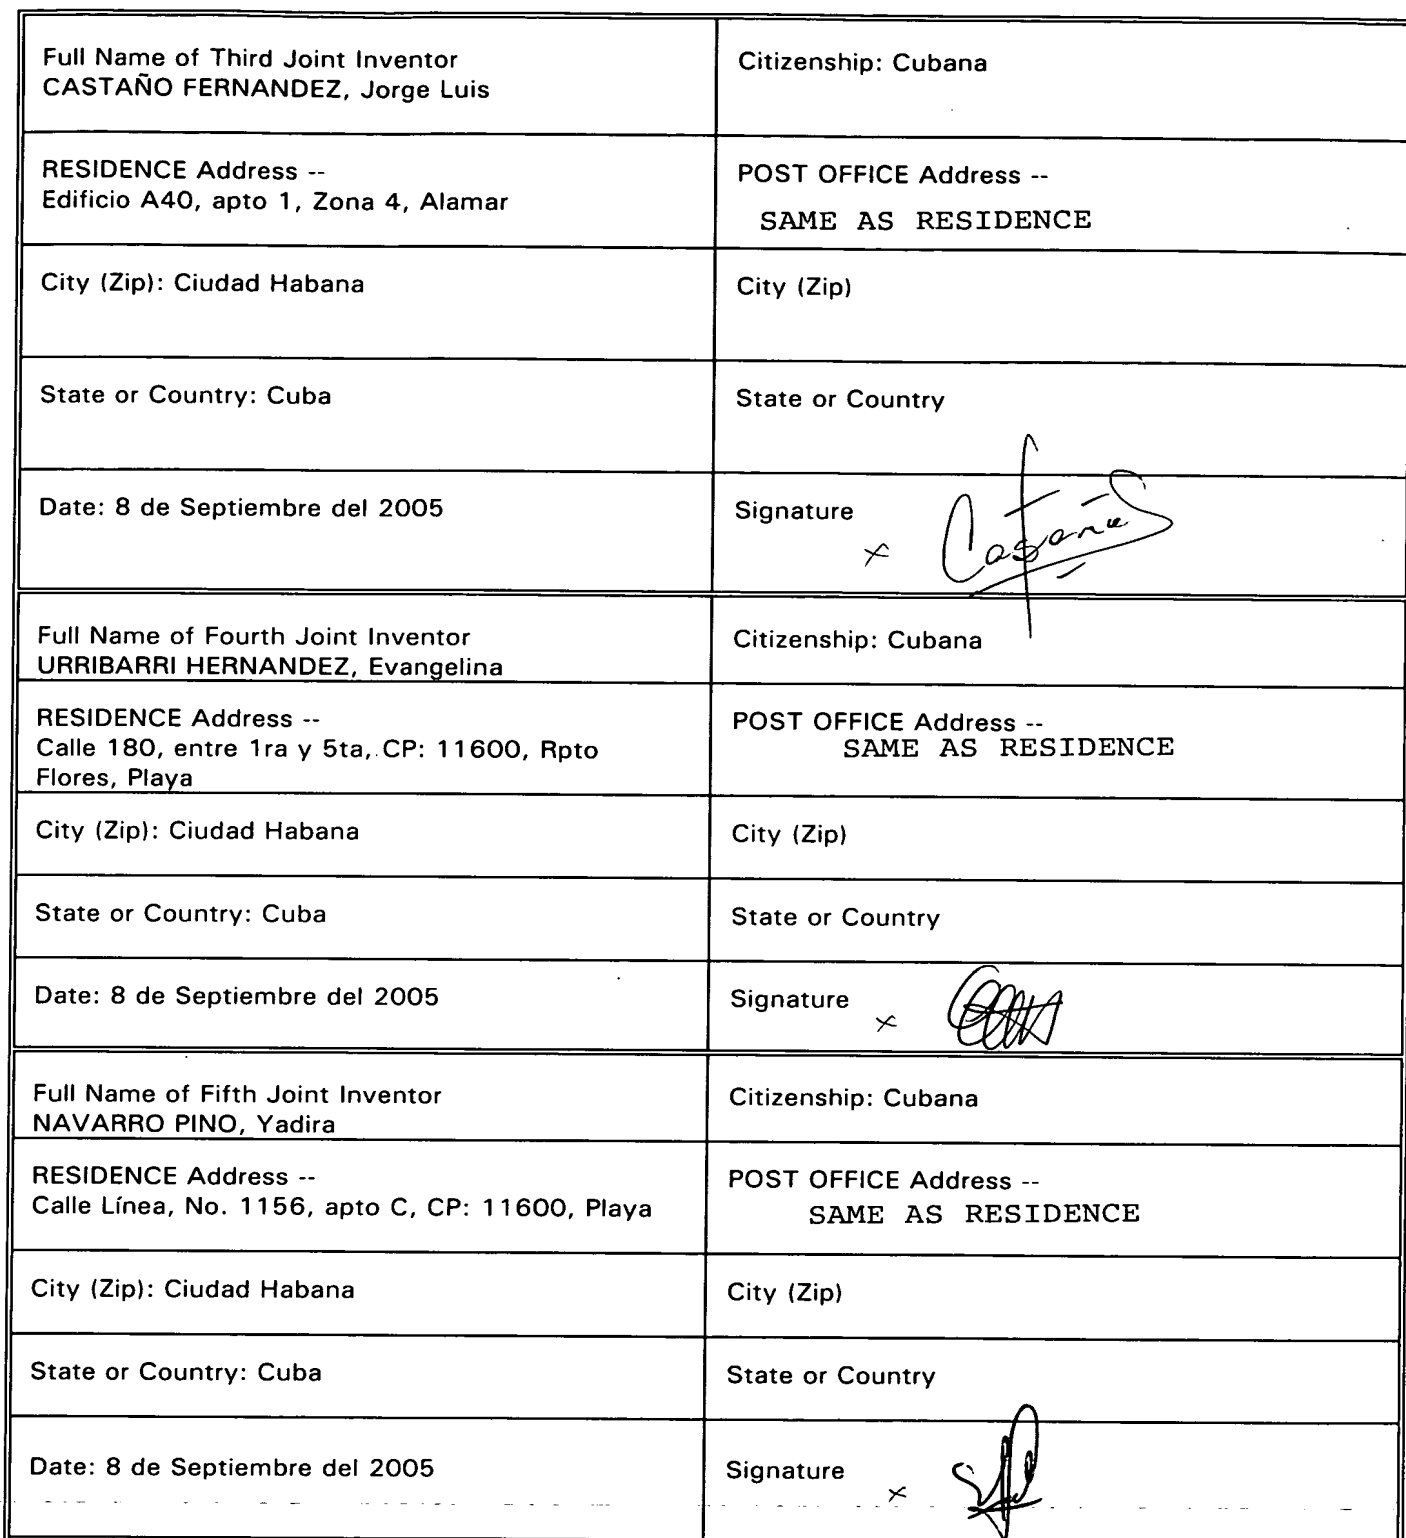 Full Name of Third Joint Inventor
CASTAÑO FERNANDEZ, Jorge Luis
Citizenship: Cubana
RESIDENCE Address --
Edificio A40, apto 1, Zona 4, Alamar
POST OFFICE Address --
SAME AS RESIDENCE
City (Zip): Ciudad Habana
City (Zip)
State or Country: Cuba
State or Country
Date: 8 de Septiembre del 2005
Signature
x
Full Name of Fourth Joint Inventor
URRIBARRI HERNANDEZ, Evangelina
Citizenship: Cubana
RESIDENCE Address --
Calle 180, entre 1ra y 5ta, CP: 11600, Rpto
Flores, Playa
POST OFFICE Address --
SAME AS RESIDENCE
City (Zip): Ciudad Habana
City (Zip)
State or Country: Cuba
State or Country
Date: 8 de Septiembre del 2005
Signature
x
Full Name of Fifth Joint Inventor
NAVARRO PINO, Yadira
Citizenship: Cubana
RESIDENCE Address --
Calle Línea, No. 1156, apto C, CP: 11600, Playa
POST OFFICE Address --
SAME AS RESIDENCE
City (Zip): Ciudad Habana
City (Zip)
State or Country: Cuba
State or Country
Date: 8 de Septiembre del 2005
Signature
x